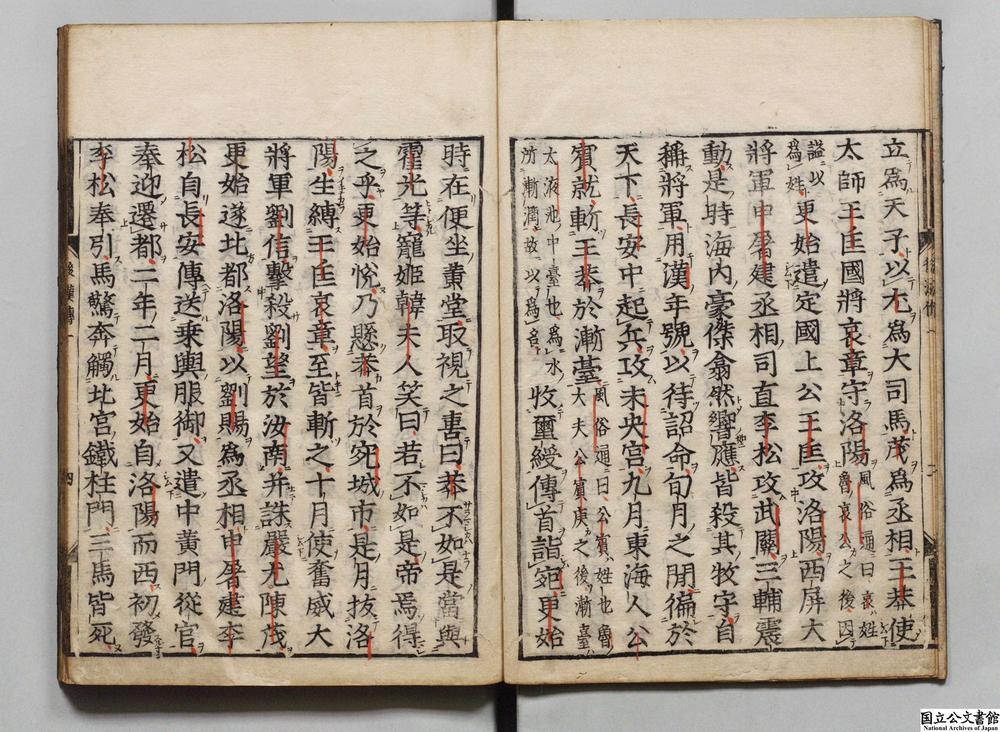 立爲天子以尤爲大司馬茂爲丞相王莽使
太師王匡國將哀章守洛陽風俗通曰哀姓
魯哀公之後因
謚以
爲姓更始遣定國上公王匡攻洛陽西屏大
將軍申屠建丞相司直李松攻武關三輔震
動是時海內豪傑翕然響應皆殺其牧守自
稱將軍用漢年號以待詔命旬月之閒徧於
天下長安中起兵攻未央宮九月東海人公
賓就斬王莽於漸臺風俗通曰公賓姓也魯
大夫公賓庚之後漸臺
太液池中臺也爲水
所漸潤故以爲名收璽綬傳首詣宛更始
時在便坐黄堂取視之喜曰莽不如是當與
霍光等寵姬韓夫人笑曰若不如是帝焉得
之乎更始悅乃懸莽首於宛城市是月拔洛
陽生縛王匡哀章至皆斬之十月使奮威大
將軍劉信擊殺劉望於汝南并誅嚴尤陳茂
更始遂北都洛陽以劉賜爲丞相申屠建李
松自長安傳送乘輿服御又遣中黄門從官
奉迎遷都二年二月更始自洛陽而西初發
李松奉引馬驚奔觸北宮鐵柱門三馬皆死
後漢傳一
四
国立公文書館
National Archives of Japan